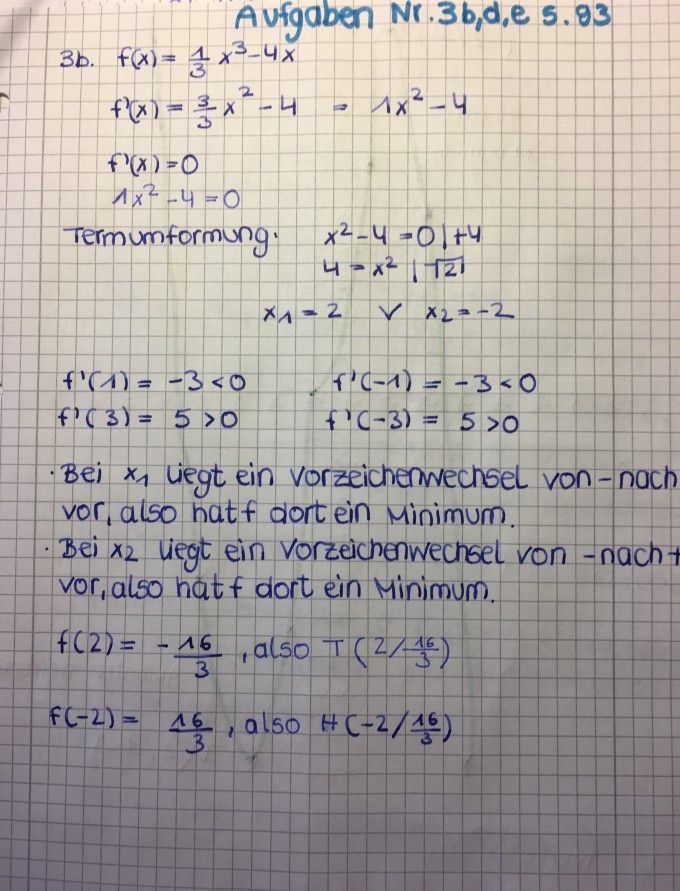 Aufgaben Nr. 3b,d,e S. 93
3b. f(x) = 1/3 x³-4x
f'(x) = 3/3 x² - 4 = 1x² - 4
f'(x) = 0
1x² - 4 = 0
Termumformung: x² - 4 = 0 | +4
4 = x² | √2
x₁ = 2 ∨ x₂ = -2
f'(1) = -3 < 0 f'(-1) = -3 < 0
f'(3) = 5 > 0 f'(-3) = 5 > 0
· Bei x₁ liegt ein Vorzeichenwechsel von - nach
vor, also hat f dort ein Minimum.
· Bei x₂ liegt ein Vorzeichenwechsel von - nach +
vor, also hat f dort ein Minimum.
f(2) = - 16/3, also T (2/-16/3)
f(-2) = 16/3, also H (-2/16/3)